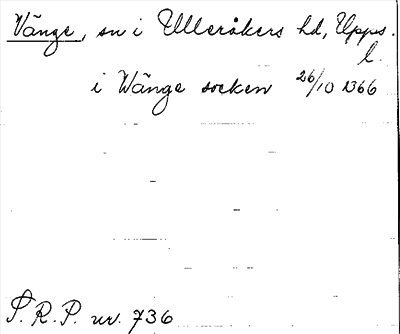 Vänge, sn i Ulleråkers hd, Upps.
l.
i Wänge socken 26/10 1366
S.R.P. nr. 736